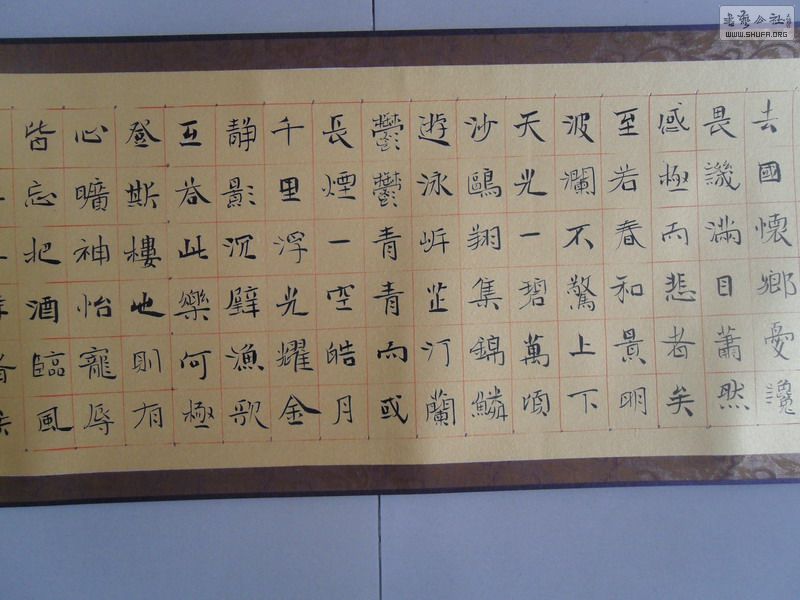 去國懷鄉憂讒
畏譏滿目蕭然
感極而悲者矣
至若春和景明
波瀾不驚上下
天光一碧萬頃
沙鷗翔集錦鱗
遊泳岸芷汀蘭
鬱鬱青青而或
長煙一空皓月
千里浮光耀金
静影沉璧漁歌
互荅此樂何極
登斯樓也則有
心曠神怡寵辱
皆忘把酒臨風
書藝公社
WWW.SHUFA.ORG